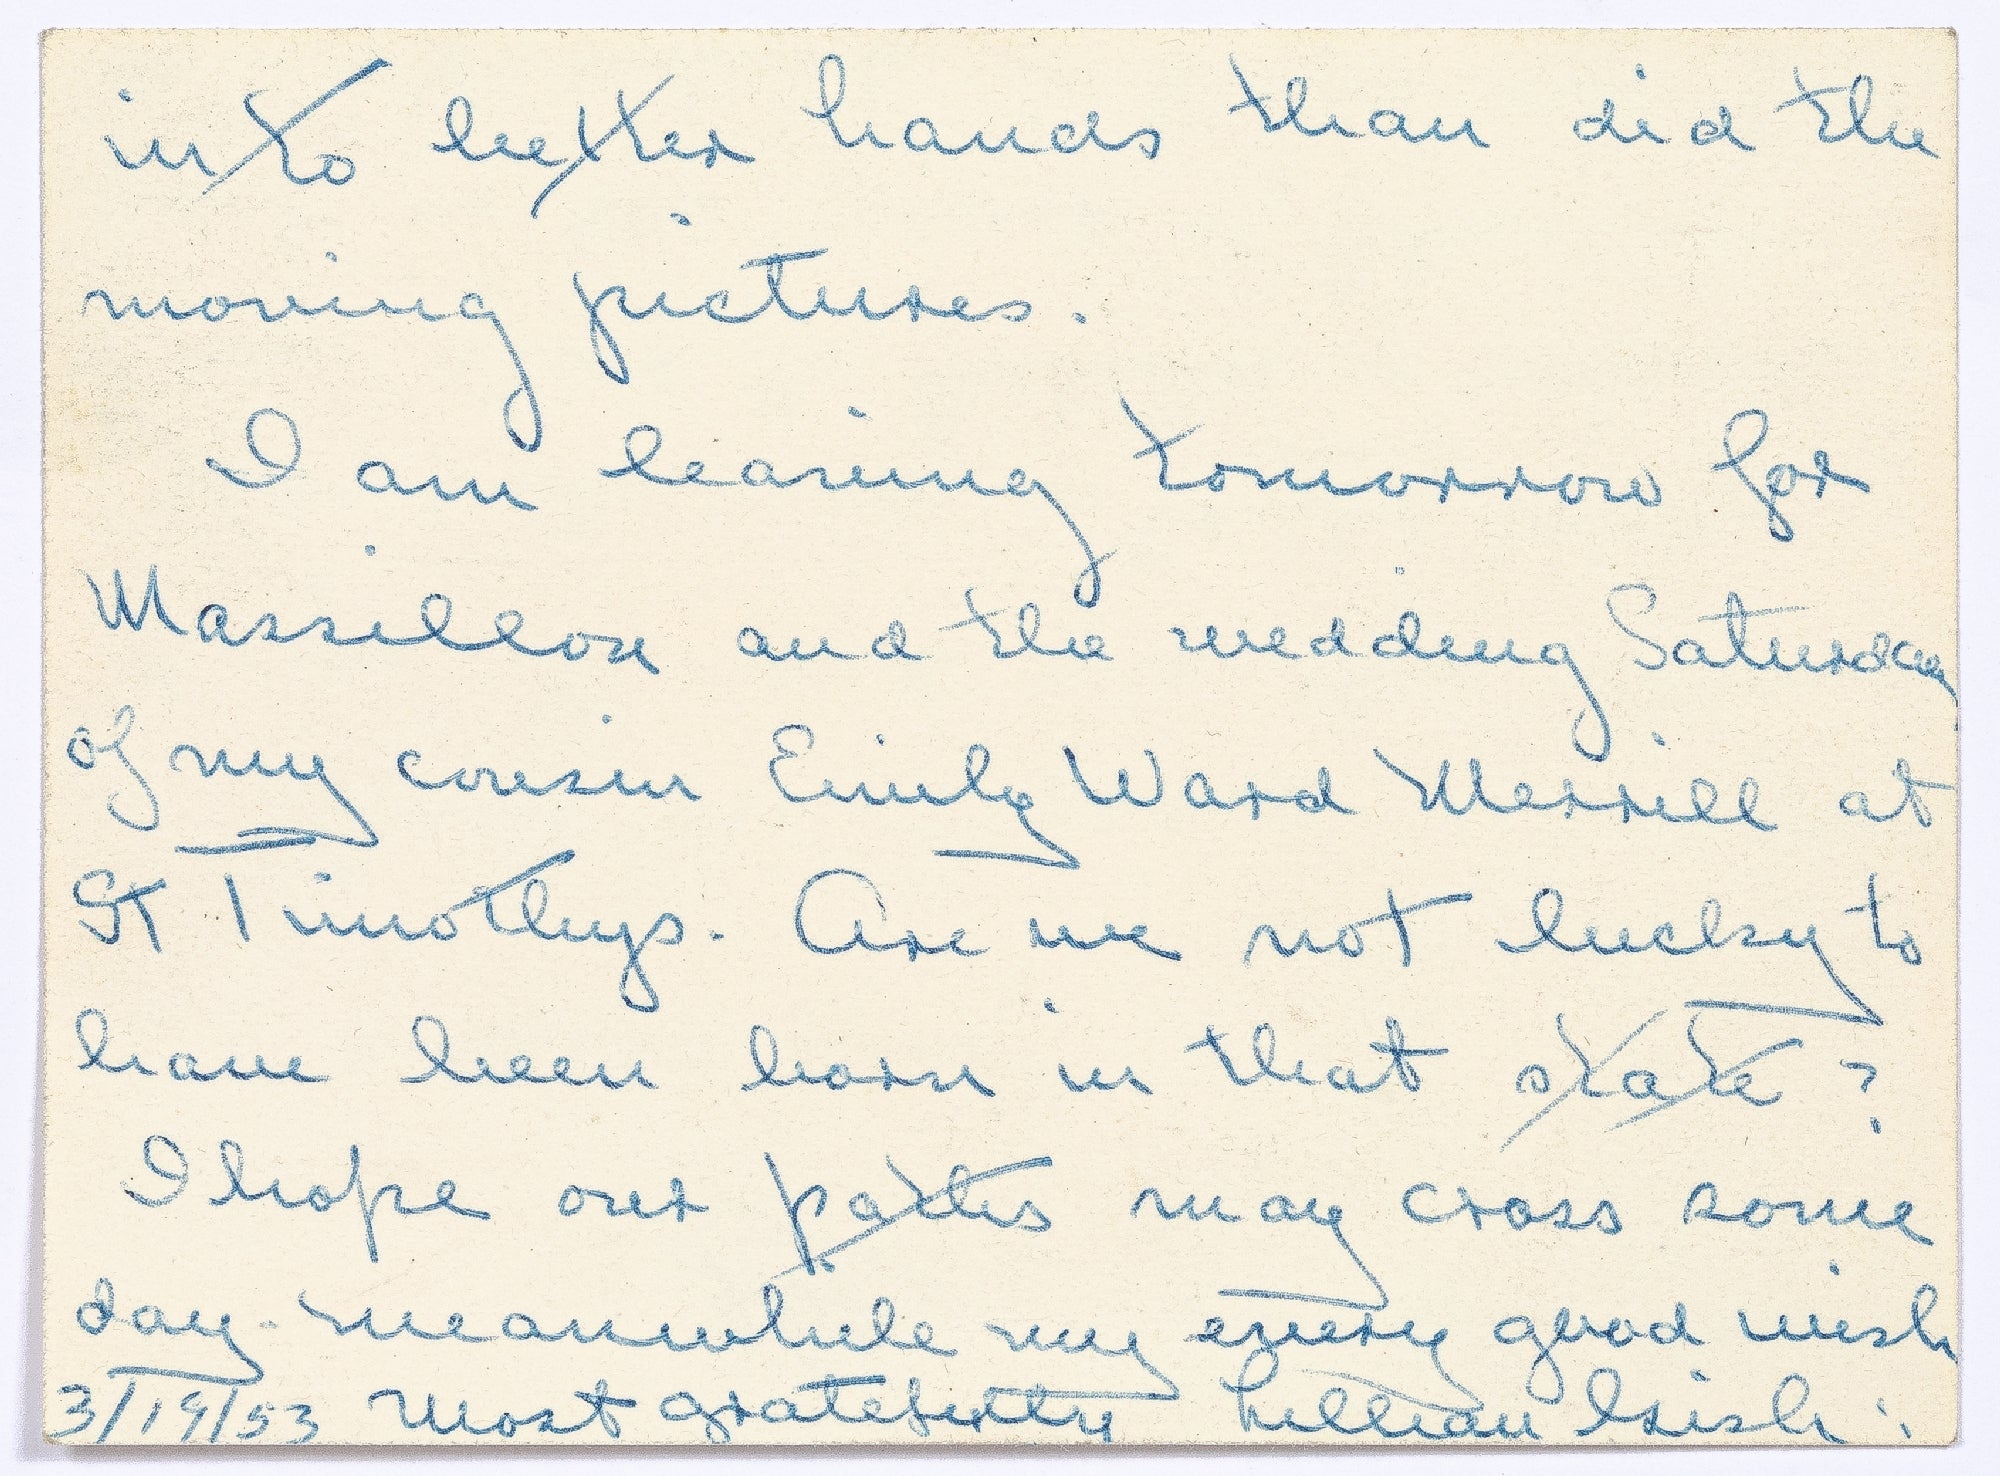 into better hands than did the
moving pictures.
I am leaving tomorrow for
Massillon and the wedding Saturday
of my cousin Emily Ward Merrill at
St Timothys. Are we not lucky to
have been born in that state?
I hope our paths may cross some
day - meanwhile my every good wish
3/19/53 Most gratefully Lillian Gish.